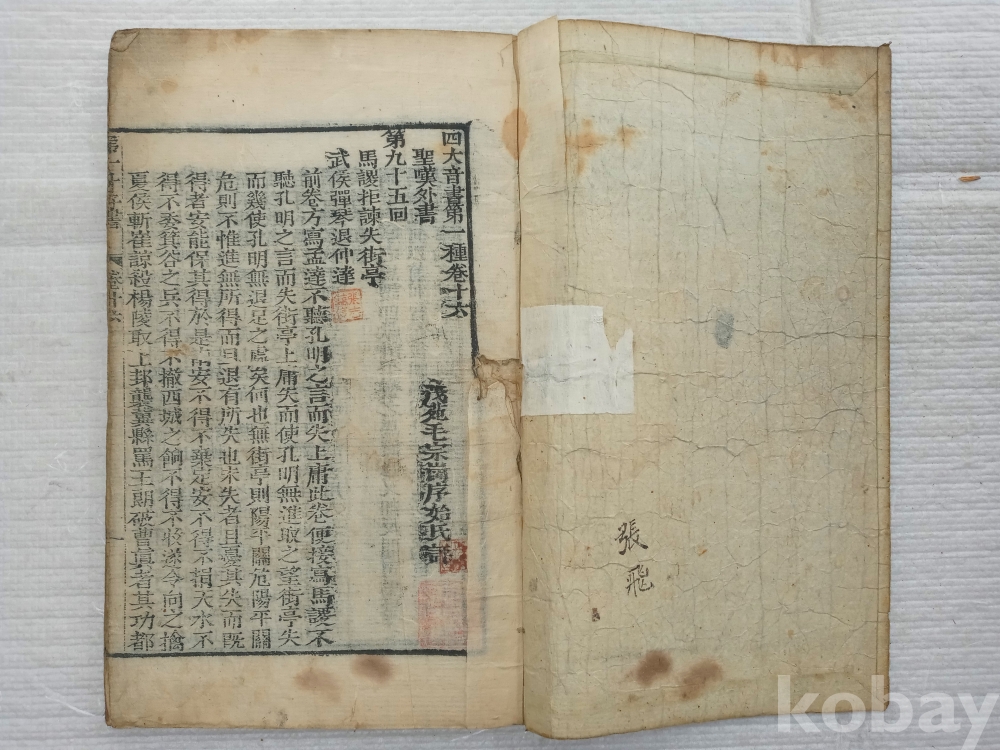 張飛
四大奇書第一種卷十六
聖嘆外書
茂苑毛宗崗序始氏
第九十五回
馬謖拒諫失街亭
武侯彈琴退仲達
前卷方寫孟達不聽孔明之言而失上庸此卷便接寫馬謖不
聽孔明之言而失街亭上庸失而使孔明無進取之望街亭失
而幾使孔明無退足之處矣何也無街亭則陽平關危陽平關
危則不惟進無所得而且退有所失也未失者且憂其失而既
得者安能保其得於是南安不得不棄定安不得不捐天水不
得不委箕谷之兵不得不撤西城之餉不得不收遂令向之擒
夏侯斬崔諒殺楊陵取上邽襲冀縣罵王朗破曹真者其功都
卷十六
kobay